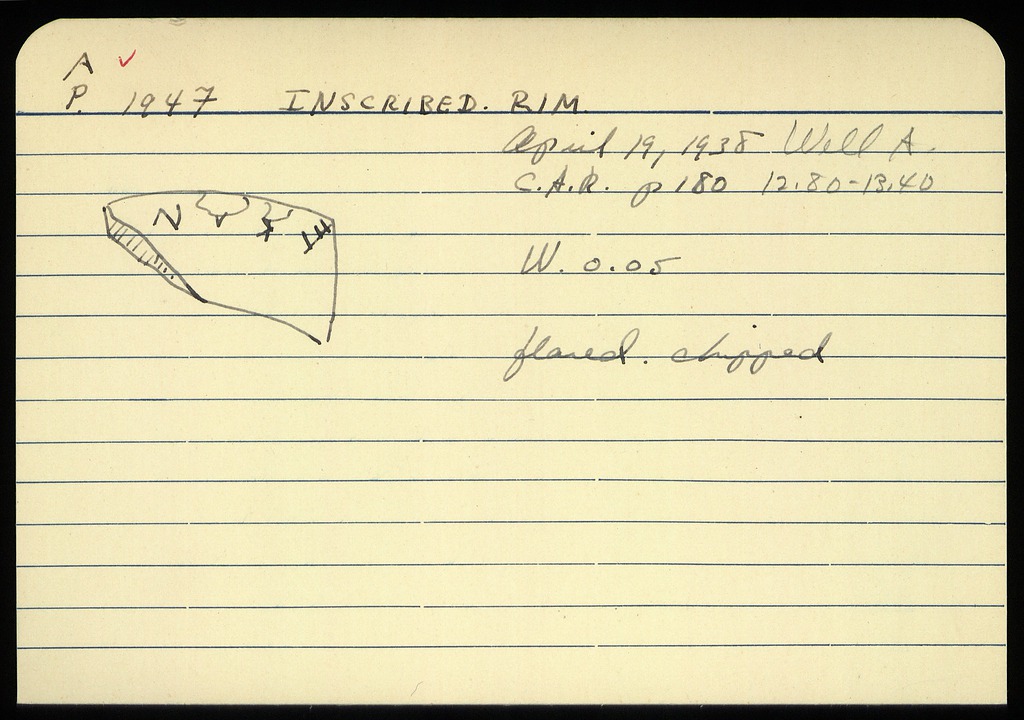 A ✓
P. 1947 INSCRIBED. RIM
April 19, 1938 Well A.
C.A.R. p 180 12.80-13.40
N
W. 0.05
flared. chipped